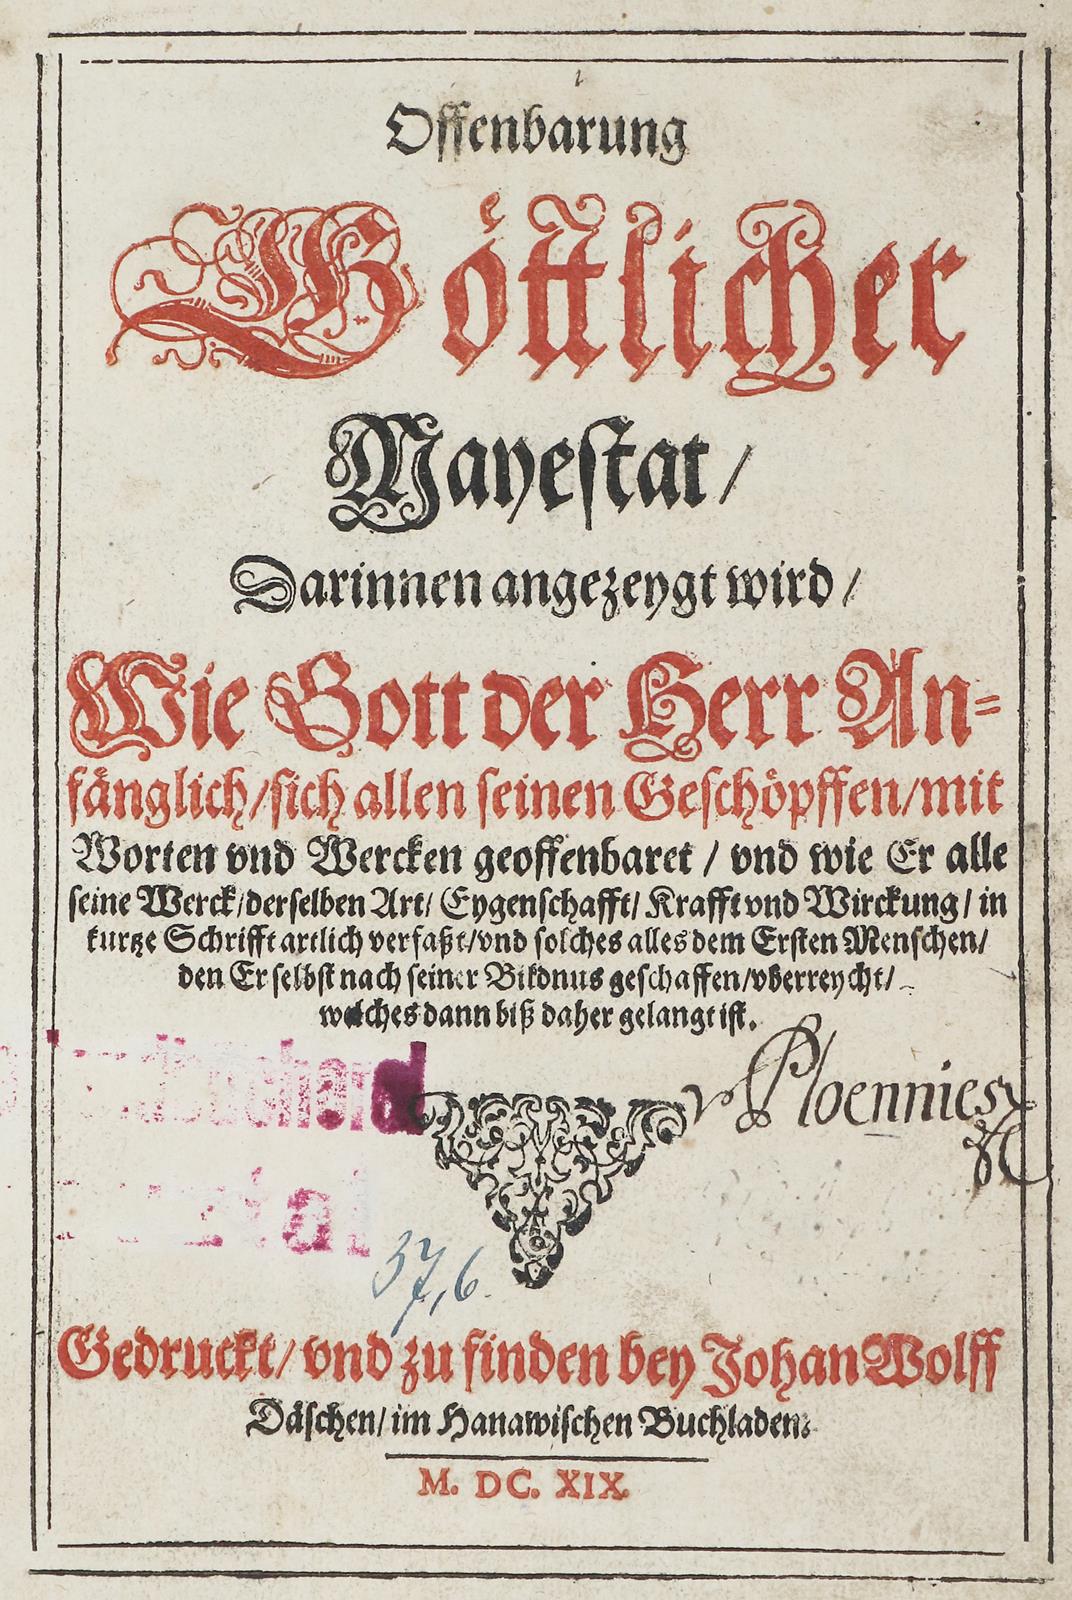 Offenbarung
Göttlicher
Mayestat /
Darinnen angezeygt wird /
Wie Gott der Herr An=
fånglich / sich allen seinen Geschöpffen / mit
Worten vnd Wercken geoffenbaret / vnd wie Er alle
seine Werck / derselben Art / Eygenschafft / Krafft vnd Wirckung / in
kurtze Schrifft artlich verfaßt / vnd solches alles dem Ersten Menschen /
den Er selbst nach seiner Bildnus geschaffen / vberreycht /
welches dann biß daher gelangt ist.
v Ploennies
37,6.
Gedruckt / vnd zu finden bey Johan Wolff
Däschen / im Hanawischen Buchladen.
M. DC. XIX.